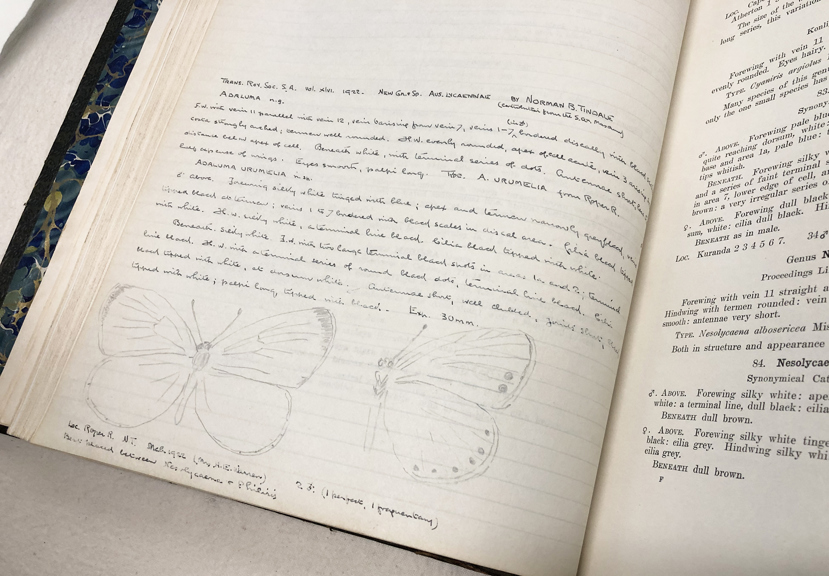 TRANS. ROY. SOC. S.A. vol. XLVI. 1922. NEW GN. & SP. AUS. LYCAENINAE BY NORMAN B. TINDALE
ADALUMA n.g. (from the S. Aus. Museum)
F.w. with vein 11 parallel with vein 12, vein arising from vein 7, veins 1-7 bordered discally with black
costa strongly arched, termen well rounded. H.w. evenly rounded, apex of cell acute, vein 3
distance below apex of cell. Beneath white, with terminal series of dots. Antennae short,
less expanse of wings. Eyes smooth, palpi long. Type. A. URUMELIA from Roper R.
ADALUMA URUMELIA n.sp.
♂ above. Forewing silky white tinged with blue; apex and termen narrowly
black at termen; veins 1 to 7 bordered with black scales in discal area. Cilia black tipped
with white. H.w. silky white, a terminal line black. Cilia black tipped with white.
Beneath. Silky white. F.w. with two large terminal black spots in areas 1a and 2; terminal
line black. H.w. with a terminal series of round black dots, terminal line black. Cilia
black tipped with white, at dorsum white. Antennae short, well clubbed,
tipped with white; palpi long, tipped with black. Exp. 30mm.
Loc Roper R. N.T. 1922 (Mrs. H.E. Warren)
between Nesolycaena &
2 ♂: (1 perfect, 1 fragmentary)
Loc.
Atherton 1
The size of the
long series, this variation
Forewing with vein 11
evenly rounded. Eyes hairy.
Type. Cyaniris argiolus
Many species of this gen
only the one small species has
83.
Synony
♂. Above. Forewing pale blu
quite reaching dorsum, white
base and area 1a, pale blue:
tips whitish.
Beneath. Forewing silky w
and a series of faint terminal
in area 7, lower edge of cell, a
brown: a very irregular series o
♀. Above. Forewing dull black
sum, white: cilia dull black. Hi
Beneath as in male.
Loc. Kuranda 2 3 4 5 6 7. 34♂
Genus N
Proceedings Li
Forewing with vein 11 straight a
Hindwing with termen rounded: vein
smooth: antennae very short.
Type. Nesolycaena albosericea Mis
Both in structure and appearance
84. Nesolycae
Synonymical Cat
♂. Above. Forewing silky white: ape
white: a terminal line, dull black: cilia
Beneath dull brown.
♀. Above. Forewing silky white tinge
black: cilia grey. Hindwing silky whi
cilia grey.
Beneath dull brown.
F